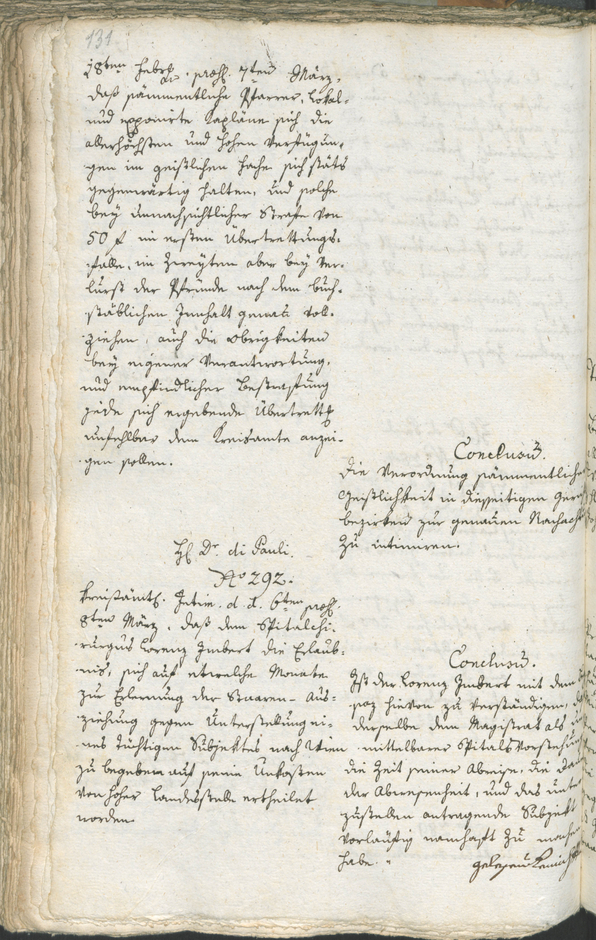 131.
28ten Febr. praes. 7ten März,
daß sämmentliche Pfarrer, Lokal-
und exponirte Kapläne sich die
allerhöchsten und hohen Verfügun-
gen im geistlichen Fache sich stäts
gegenwärtig halten, und solche
bey unnachsichtlicher Strafe von
50 f im ersten Übertrettungs-
falle, im Zweyten aber bey Ver-
lurst der Pfründe nach dem buch-
stäblichen Innhalt genau voll-
ziehen, auch die Obrigkeiten
bey eigener Verantwortung,
und empfindlicher Bestrafung
jede sich ergebende Übertrettg
unfehlbar dem Kreisamte anzei-
gen sollen.
Conclusũ.
Die Verordnung sämmentlicher
Geistlichkeit in diesseitigen
bezirken zur genauen
zu intimiren.
H. Dr. di Pauli.
No 292.
Kreisämtl. Intim. d. d. 6ten praes.
8ten März, daß dem Spitalchi-
rurgus Lorenz Imbert die Erlaub-
nis, sich auf etwelche Monate
zur Erlernung der Staaren-Aus-
ziehung gegen Unterstellung ei-
nes tüchtigen Subjektes nach Wien
zu begeben auf seine Unkosten
von hoher Landesstelle ertheilet
worden.
Conclusũ.
Ist der Lorenz Imbert mit dem
hievon zu verständigen,
derselbe dem Magistrat als
mittelbarer Spitals
die Zeit seiner Abreise, die
der Abwesenheit, und das
zustellen antragende Subjekt
vorläufig namhaft zu machen
habe.